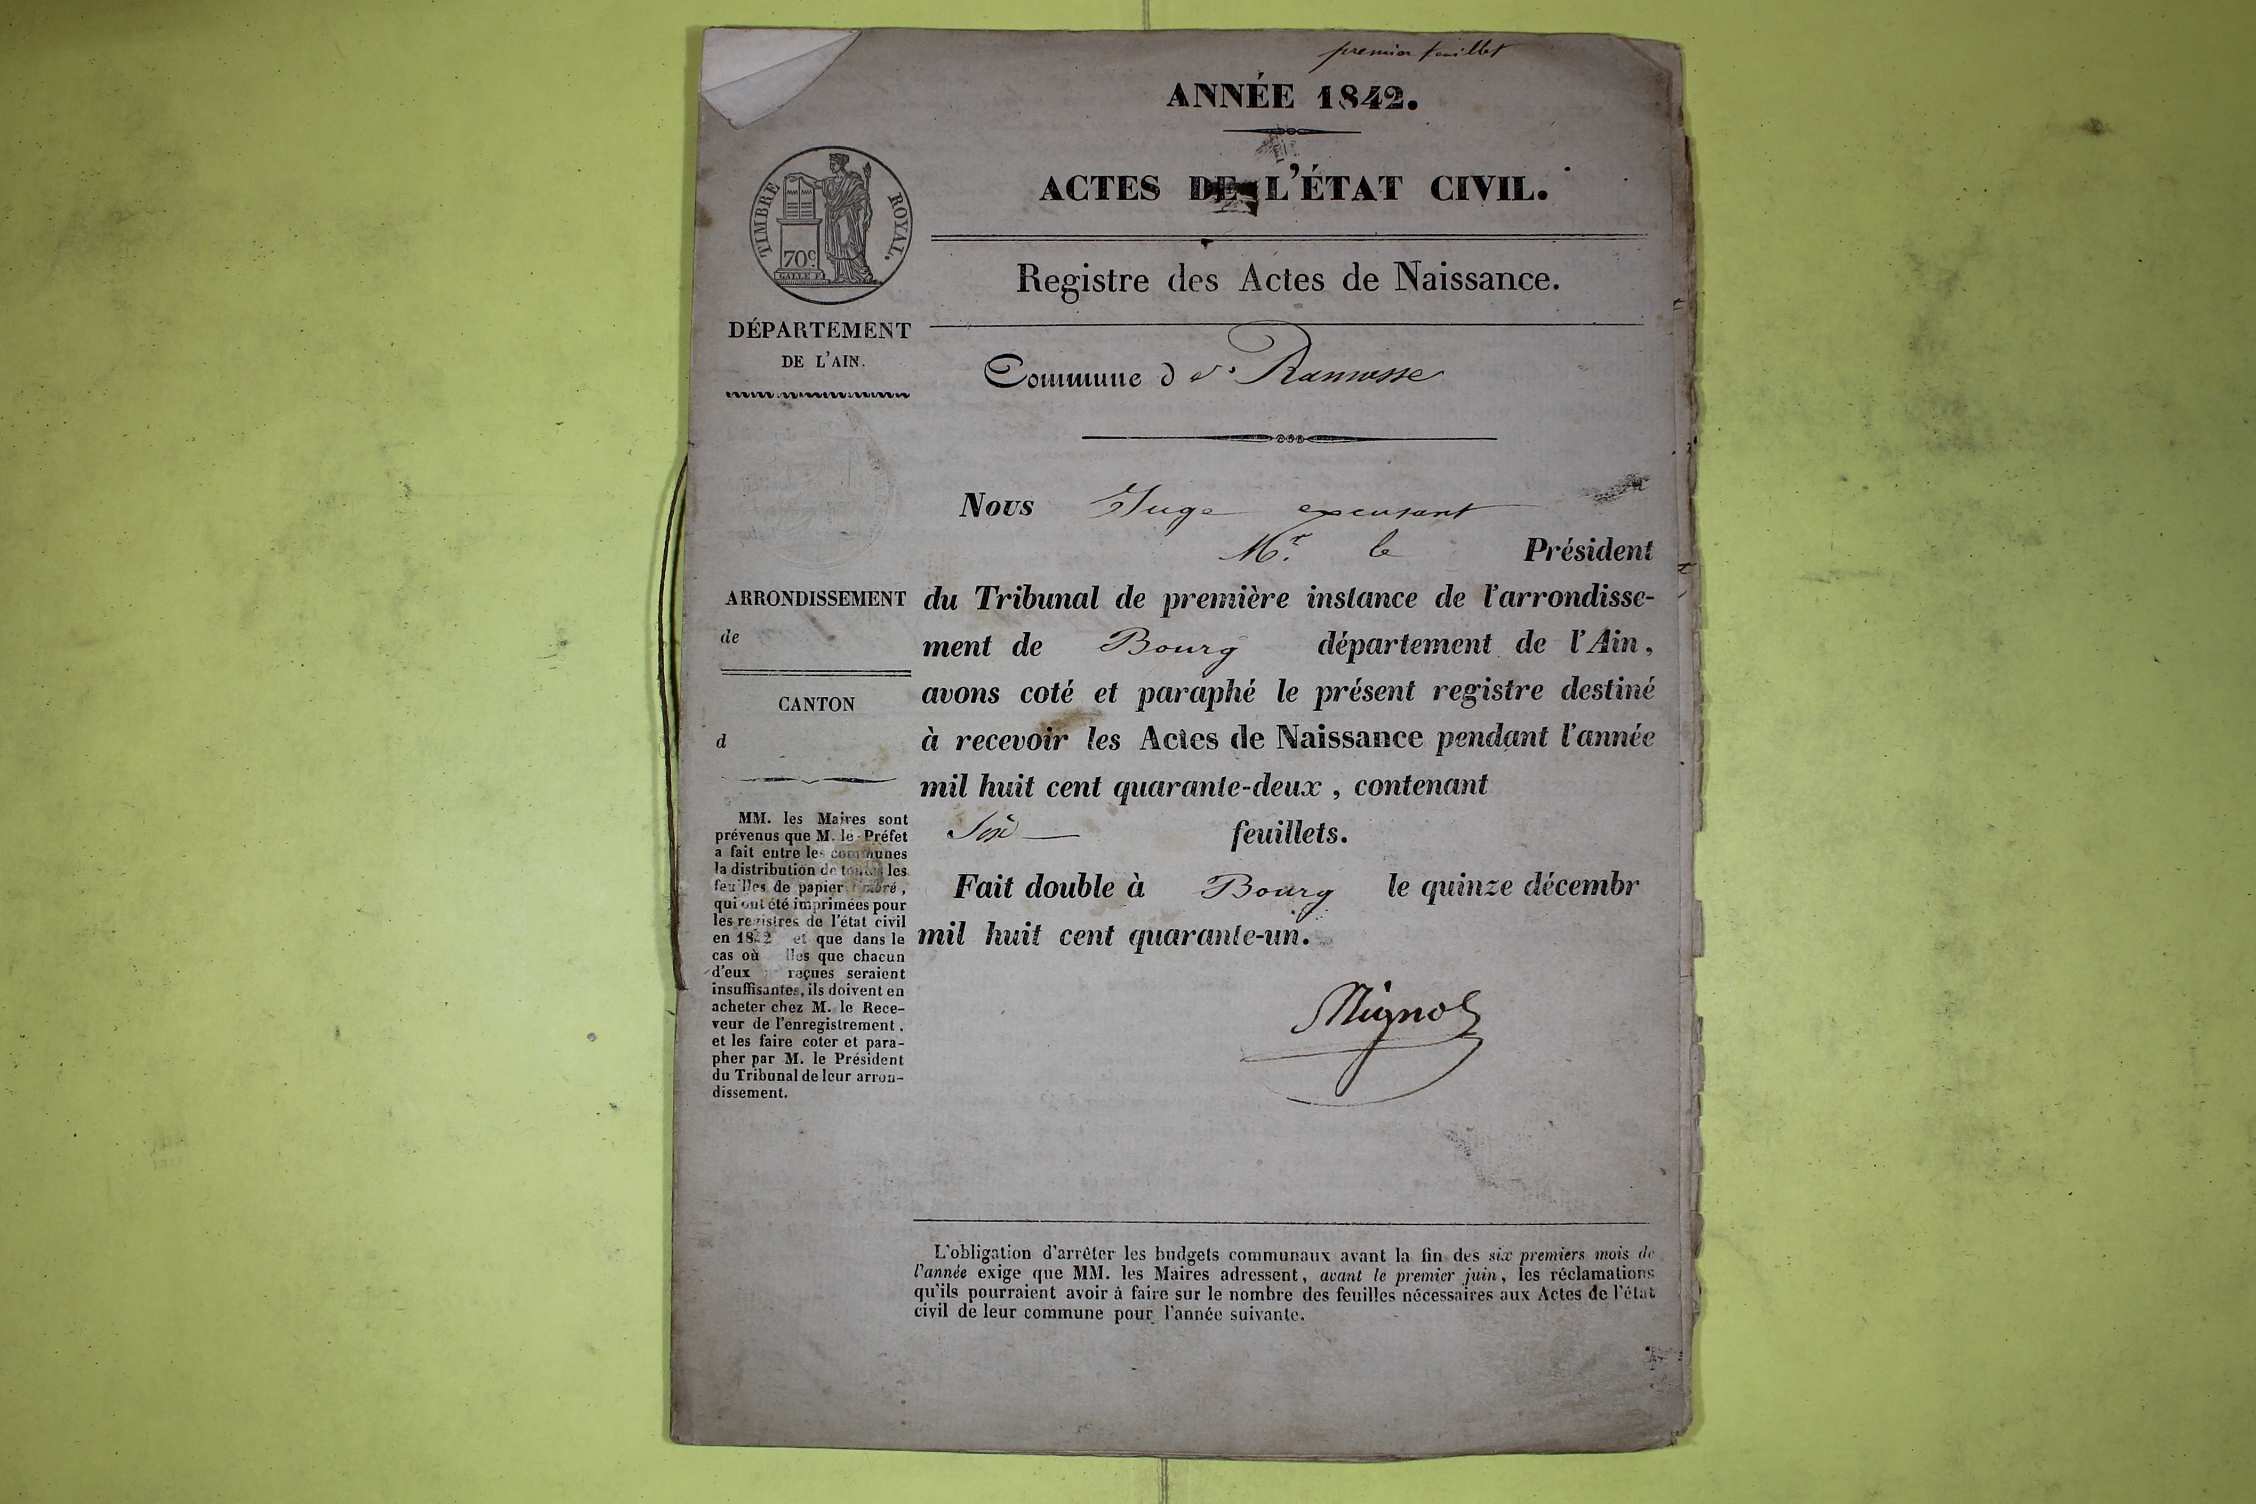 premier feuillet
ANNÉE 1842.
ACTES DE L'ÉTAT CIVIL.
Registre des Actes de Naissance.
TIMBRE ROYAL.
70c.
GALLE F.
DÉPARTEMENT
DE L'AIN.
Commune de Ramasse
Nous Juge excusant
Mr. le Président
du Tribunal de première instance de l'arrondisse-
ment de Bourg département de l'Ain,
avons coté et paraphé le présent registre destiné
à recevoir les Actes de Naissance pendant l'année
mil huit cent quarante-deux, contenant
Six feuillets.
Fait double à Bourg le quinze décembr
mil huit cent quarante-un.
ARRONDISSEMENT
de
CANTON
d
MM. les Maires sont
prévenus que M. le Préfet
a fait entre les communes
la distribution de toutes les
feuilles de papier timbré,
qui ont été imprimées pour
les registres de l'état civil
en 1842 et que dans le
cas où lles que chacun
d'eux reçues seraient
insuffisantes, ils doivent en
acheter chez M. le Rece-
veur de l'enregistrement,
et les faire coter et para-
pher par M. le Président
du Tribunal de leur arron-
dissement.
L'obligation d'arrêter les budgets communaux avant la fin des six premiers mois de
l'année exige que MM. les Maires adressent, avant le premier juin, les réclamations
qu'ils pourraient avoir à faire sur le nombre des feuilles nécessaires aux Actes de l'état
civil de leur commune pour l'année suivante.